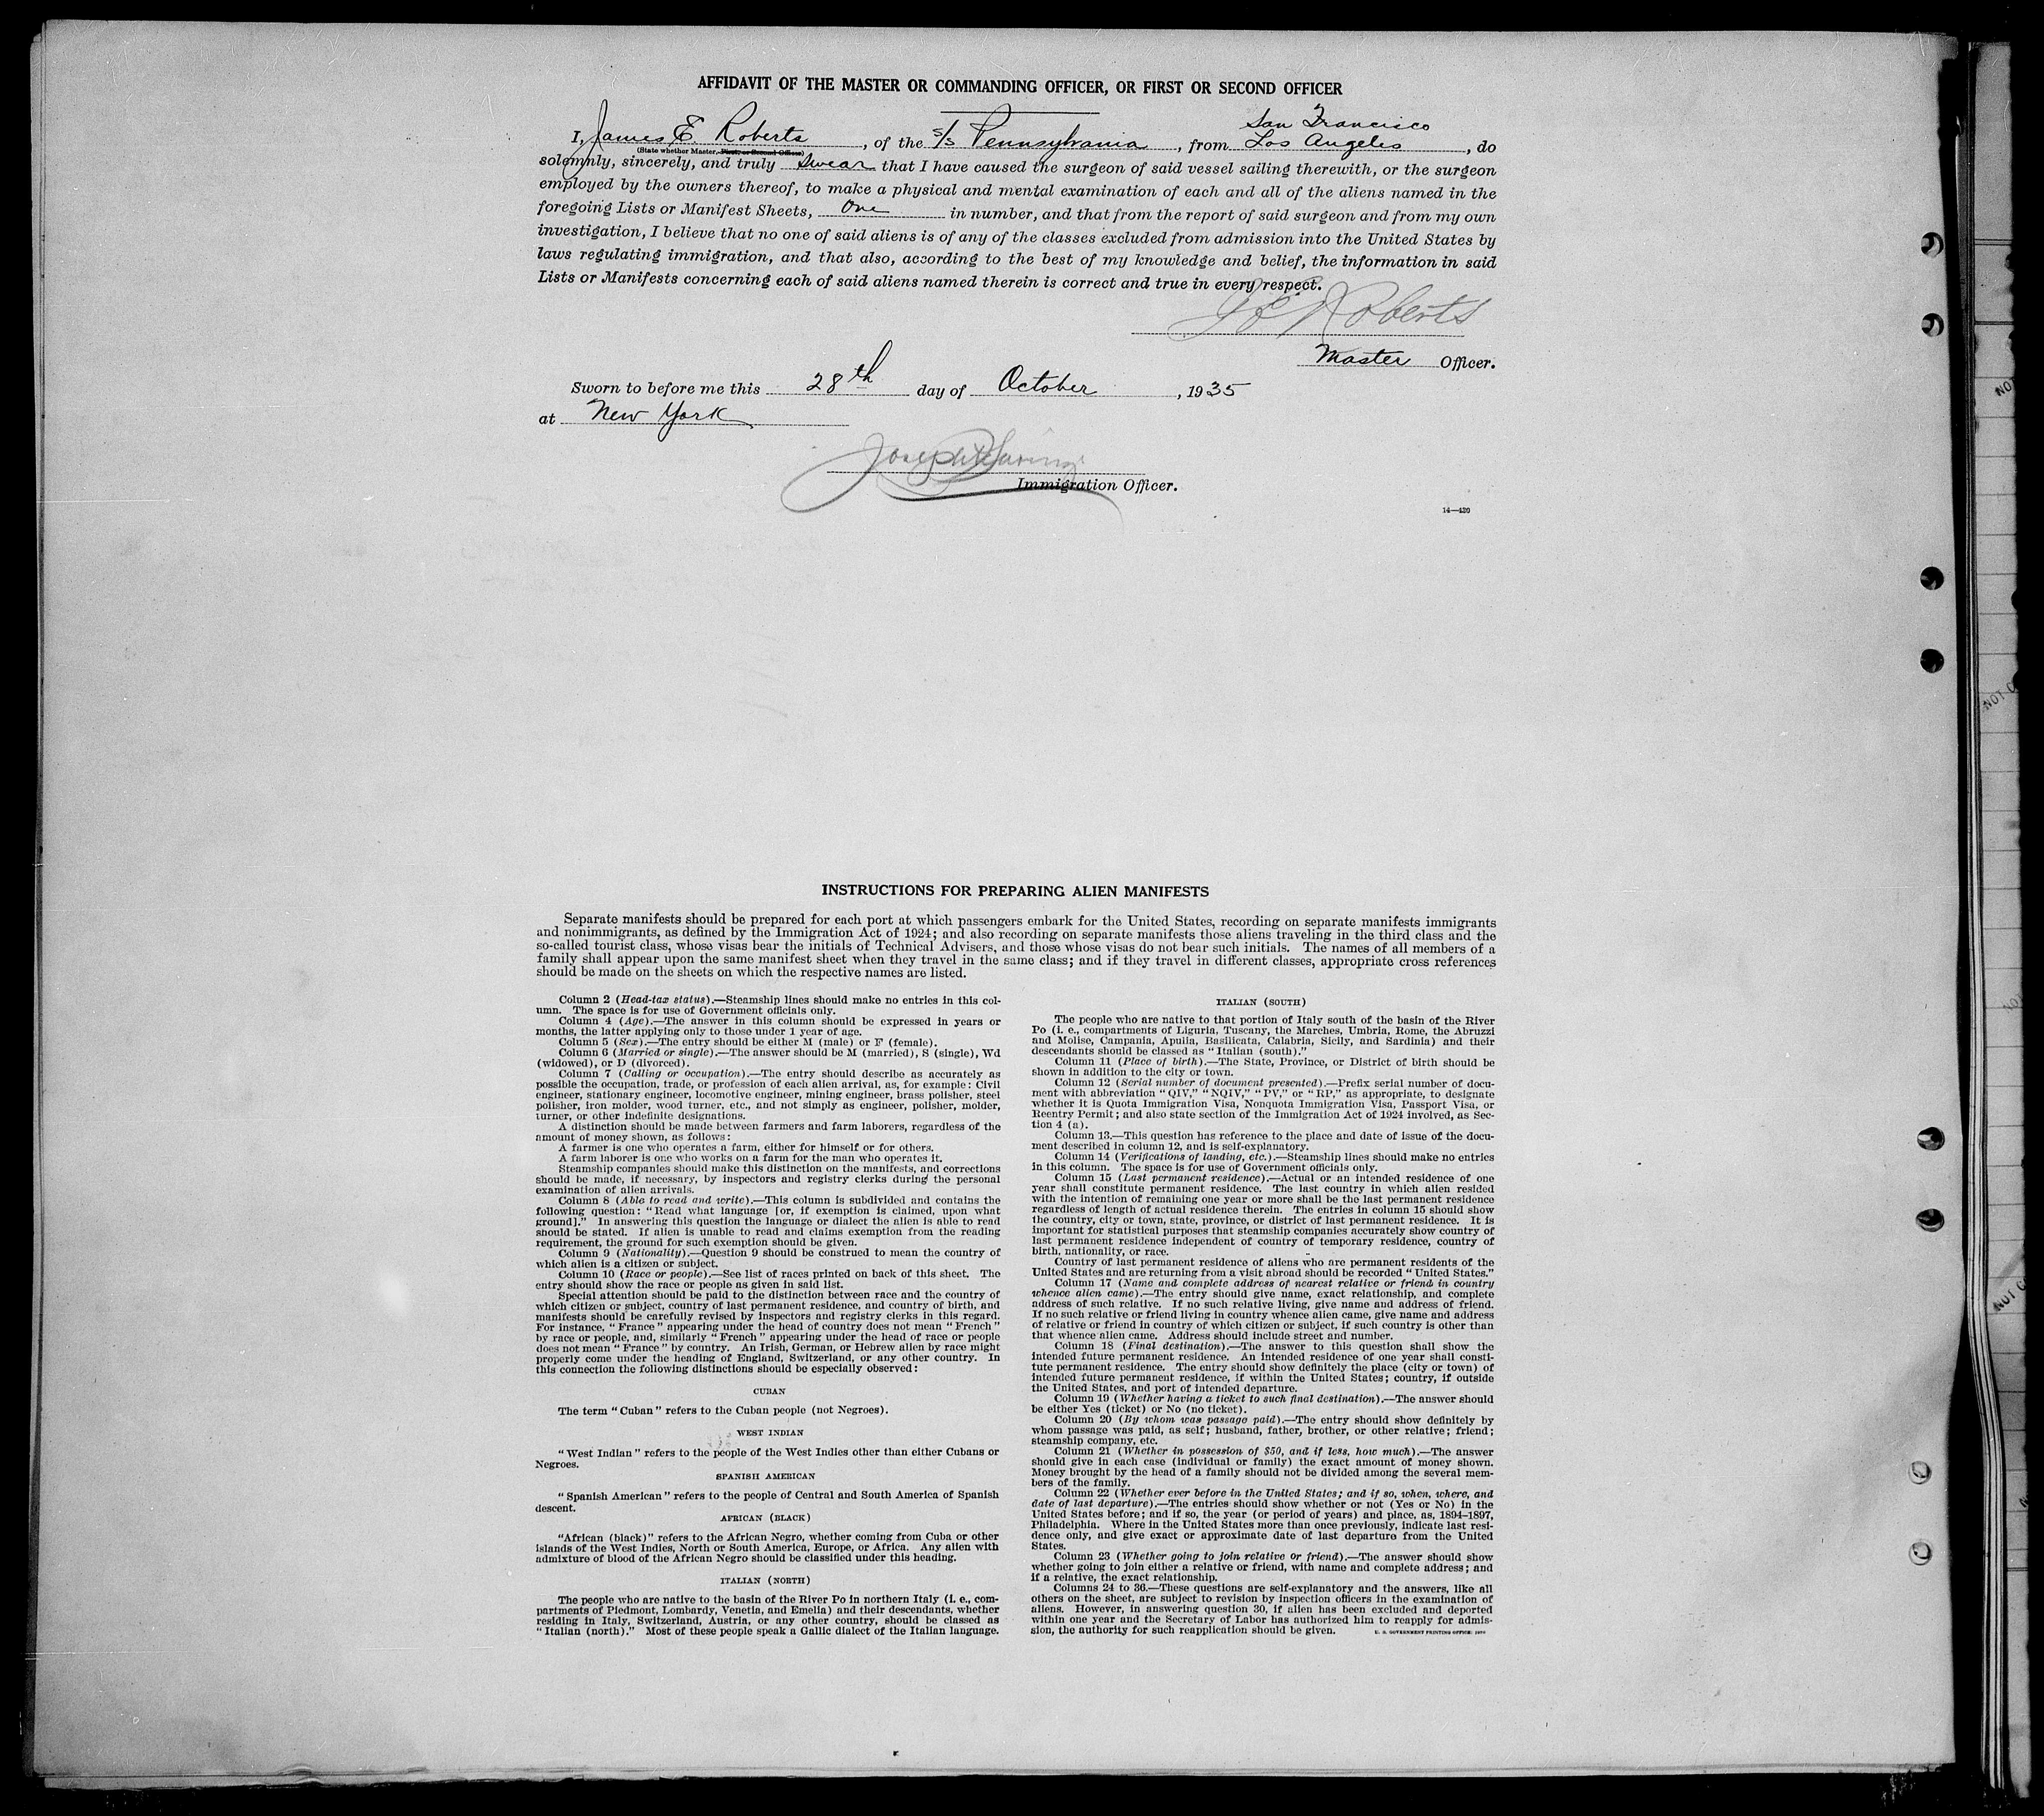 AFFIDAVIT OF THE MASTER OR COMMANDING OFFICER, OR FIRST OR SECOND OFFICER
San Francisco
I, James E. Roberts, of the S/S Pennsylvania, from Los Angeles, do
(State whether Master, First, or Second Officer)
solemnly, sincerely, and truly swear that I have caused the surgeon of said vessel sailing therewith, or the surgeon
employed by the owners thereof, to make a physical and mental examination of each and all of the aliens named in the
foregoing Lists or Manifest Sheets, One in number, and that from the report of said surgeon and from my own
investigation, I believe that no one of said aliens is of any of the classes excluded from admission into the United States by
laws regulating immigration, and that also, according to the best of my knowledge and belief, the information in said
Lists or Manifests concerning each of said aliens named therein is correct and true in every respect.
J E Roberts
Master Officer.
Sworn to before me this 28th day of October, 1935
at New York
Joseph
Immigration Officer.
14—420
INSTRUCTIONS FOR PREPARING ALIEN MANIFESTS
Separate manifests should be prepared for each port at which passengers embark for the United States, recording on separate manifests immigrants
and nonimmigrants, as defined by the Immigration Act of 1924; and also recording on separate manifests those aliens traveling in the third class and the
so-called tourist class, whose visas bear the initials of Technical Advisers, and those whose visas do not bear such initials. The names of all members of a
family shall appear upon the same manifest sheet when they travel in the same class; and if they travel in different classes, appropriate cross references
should be made on the sheets on which the respective names are listed.
Column 2 (Head-tax status).—Steamship lines should make no entries in this col-
umn. The space is for use of Government officials only.
Column 4 (Age).—The answer in this column should be expressed in years or
months, the latter applying only to those under 1 year of age.
Column 5 (Sex).—The entry should be either M (male) or F (female).
Column 6 (Married or single).—The answer should be M (married), S (single), Wd
(widowed), or D (divorced).
Column 7 (Calling or occupation).—The entry should describe as accurately as
possible the occupation, trade, or profession of each alien arrival, as, for example: Civil
engineer, stationary engineer, locomotive engineer, mining engineer, brass polisher, steel
polisher, iron molder, wood turner, etc., and not simply as engineer, polisher, molder,
turner, or other indefinite designations.
A distinction should be made between farmers and farm laborers, regardless of the
amount of money shown, as follows:
A farmer is one who operates a farm, either for himself or for others.
A farm laborer is one who works on a farm for the man who operates it.
Steamship companies should make this distinction on the manifests, and corrections
should be made, if necessary, by inspectors and registry clerks during the personal
examination of alien arrivals.
Column 8 (Able to read and write).—This column is subdivided and contains the
following question: "Read what language [or, if exemption is claimed, upon what
ground]." In answering this question the language or dialect the alien is able to read
should be stated. If alien is unable to read and claims exemption from the reading
requirement, the ground for such exemption should be given.
Column 9 (Nationality).—Question 9 should be construed to mean the country of
which alien is a citizen or subject.
Column 10 (Race or people).—See list of races printed on back of this sheet. The
entry should show the race or people as given in said list.
Special attention should be paid to the distinction between race and the country of
which citizen or subject, country of last permanent residence, and country of birth, and
manifests should be carefully revised by inspectors and registry clerks in this regard.
For instance, "France" appearing under the head of country does not mean "French"
by race or people, and, similarly "French" appearing under the head of race or people
does not mean "France" by country. An Irish, German, or Hebrew alien by race might
properly come under the heading of England, Switzerland, or any other country. In
this connection the following distinctions should be especially observed:
CUBAN
The term "Cuban" refers to the Cuban people (not Negroes).
WEST INDIAN
"West Indian" refers to the people of the West Indies other than either Cubans or
Negroes.
SPANISH AMERICAN
"Spanish American" refers to the people of Central and South America of Spanish
descent.
AFRICAN (BLACK)
"African (black)" refers to the African Negro, whether coming from Cuba or other
islands of the West Indies, North or South America, Europe, or Africa. Any alien with
admixture of blood of the African Negro should be classified under this heading.
ITALIAN (NORTH)
The people who are native to the basin of the River Po in northern Italy (i. e., com-
partments of Piedmont, Lombardy, Venetia, and Emelia) and their descendants, whether
residing in Italy, Switzerland, Austria, or any other country, should be classed as
"Italian (north)." Most of these people speak a Gallic dialect of the Italian language.
ITALIAN (SOUTH)
The people who are native to that portion of Italy south of the basin of the River
Po (i. e., compartments of Liguria, Tuscany, the Marches, Umbria, Rome, the Abruzzi
and Molise, Campania, Apulia, Basilicata, Calabria, Sicily, and Sardinia) and their
descendants should be classed as "Italian (south)."
Column 11 (Place of birth).—The State, Province, or District of birth should be
shown in addition to the city or town.
Column 12 (Serial number of document presented).—Prefix serial number of docu-
ment with abbreviation "QIV," "NQIV," "PV," or "RP," as appropriate, to designate
whether it is Quota Immigration Visa, Nonquota Immigration Visa, Passport Visa, or
Reentry Permit; and also state section of the Immigration Act of 1924 involved, as Sec-
tion 4 (a).
Column 13.—This question has reference to the place and date of issue of the docu-
ment described in column 12, and is self-explanatory.
Column 14 (Verifications of landing, etc.).—Steamship lines should make no entries
in this column. The space is for use of Government officials only.
Column 15 (Last permanent residence).—Actual or an intended residence of one
year shall constitute permanent residence. The last country in which alien resided
with the intention of remaining one year or more shall be the last permanent residence
regardless of length of actual residence therein. The entries in column 15 should show
the country, city or town, state, province, or district of last permanent residence. It is
important for statistical purposes that steamship companies accurately show country of
last permanent residence independent of country of temporary residence, country of
birth, nationality, or race.
Country of last permanent residence of aliens who are permanent residents of the
United States and are returning from a visit abroad should be recorded "United States."
Column 17 (Name and complete address of nearest relative or friend in country
whence alien came).—The entry should give name, exact relationship, and complete
address of such relative. If no such relative living, give name and address of friend.
If no such relative or friend living in country whence alien came, give name and address
of relative or friend in country of which citizen or subject, if such country is other than
that whence alien came. Address should include street and number.
Column 18 (Final destination).—The answer to this question shall show the
intended future permanent residence. An intended residence of one year shall consti-
tute permanent residence. The entry should show definitely the place (city or town) of
intended future permanent residence, if within the United States; country, if outside
the United States, and port of intended departure.
Column 19 (Whether having a ticket to such final destination).—The answer should
be either Yes (ticket) or No (no ticket).
Column 20 (By whom was passage paid).—The entry should show definitely by
whom passage was paid, as self; husband, father, brother, or other relative; friend;
steamship company, etc.
Column 21 (Whether in possession of $50, and if less, how much).—The answer
should give in each case (individual or family) the exact amount of money shown.
Money brought by the head of a family should not be divided among the several mem-
bers of the family.
Column 22 (Whether ever before in the United States; and if so, when, where, and
date of last departure).—The entries should show whether or not (Yes or No) in the
United States before; and if so, the year (or period of years) and place, as, 1894–1897,
Philadelphia. Where in the United States more than once previously, indicate last resi-
dence only, and give exact or approximate date of last departure from the United
States.
Column 23 (Whether going to join relative or friend).—The answer should show
whether going to join either a relative or friend, with name and complete address; and
if a relative, the exact relationship.
Columns 24 to 36.—These questions are self-explanatory and the answers, like all
others on the sheet, are subject to revision by inspection officers in the examination of
aliens. However, in answering question 30, if alien has been excluded and deported
within one year and the Secretary of Labor has authorized him to reapply for admis-
sion, the authority for such reapplication should be given.
U. S. GOVERNMENT PRINTING OFFICE: